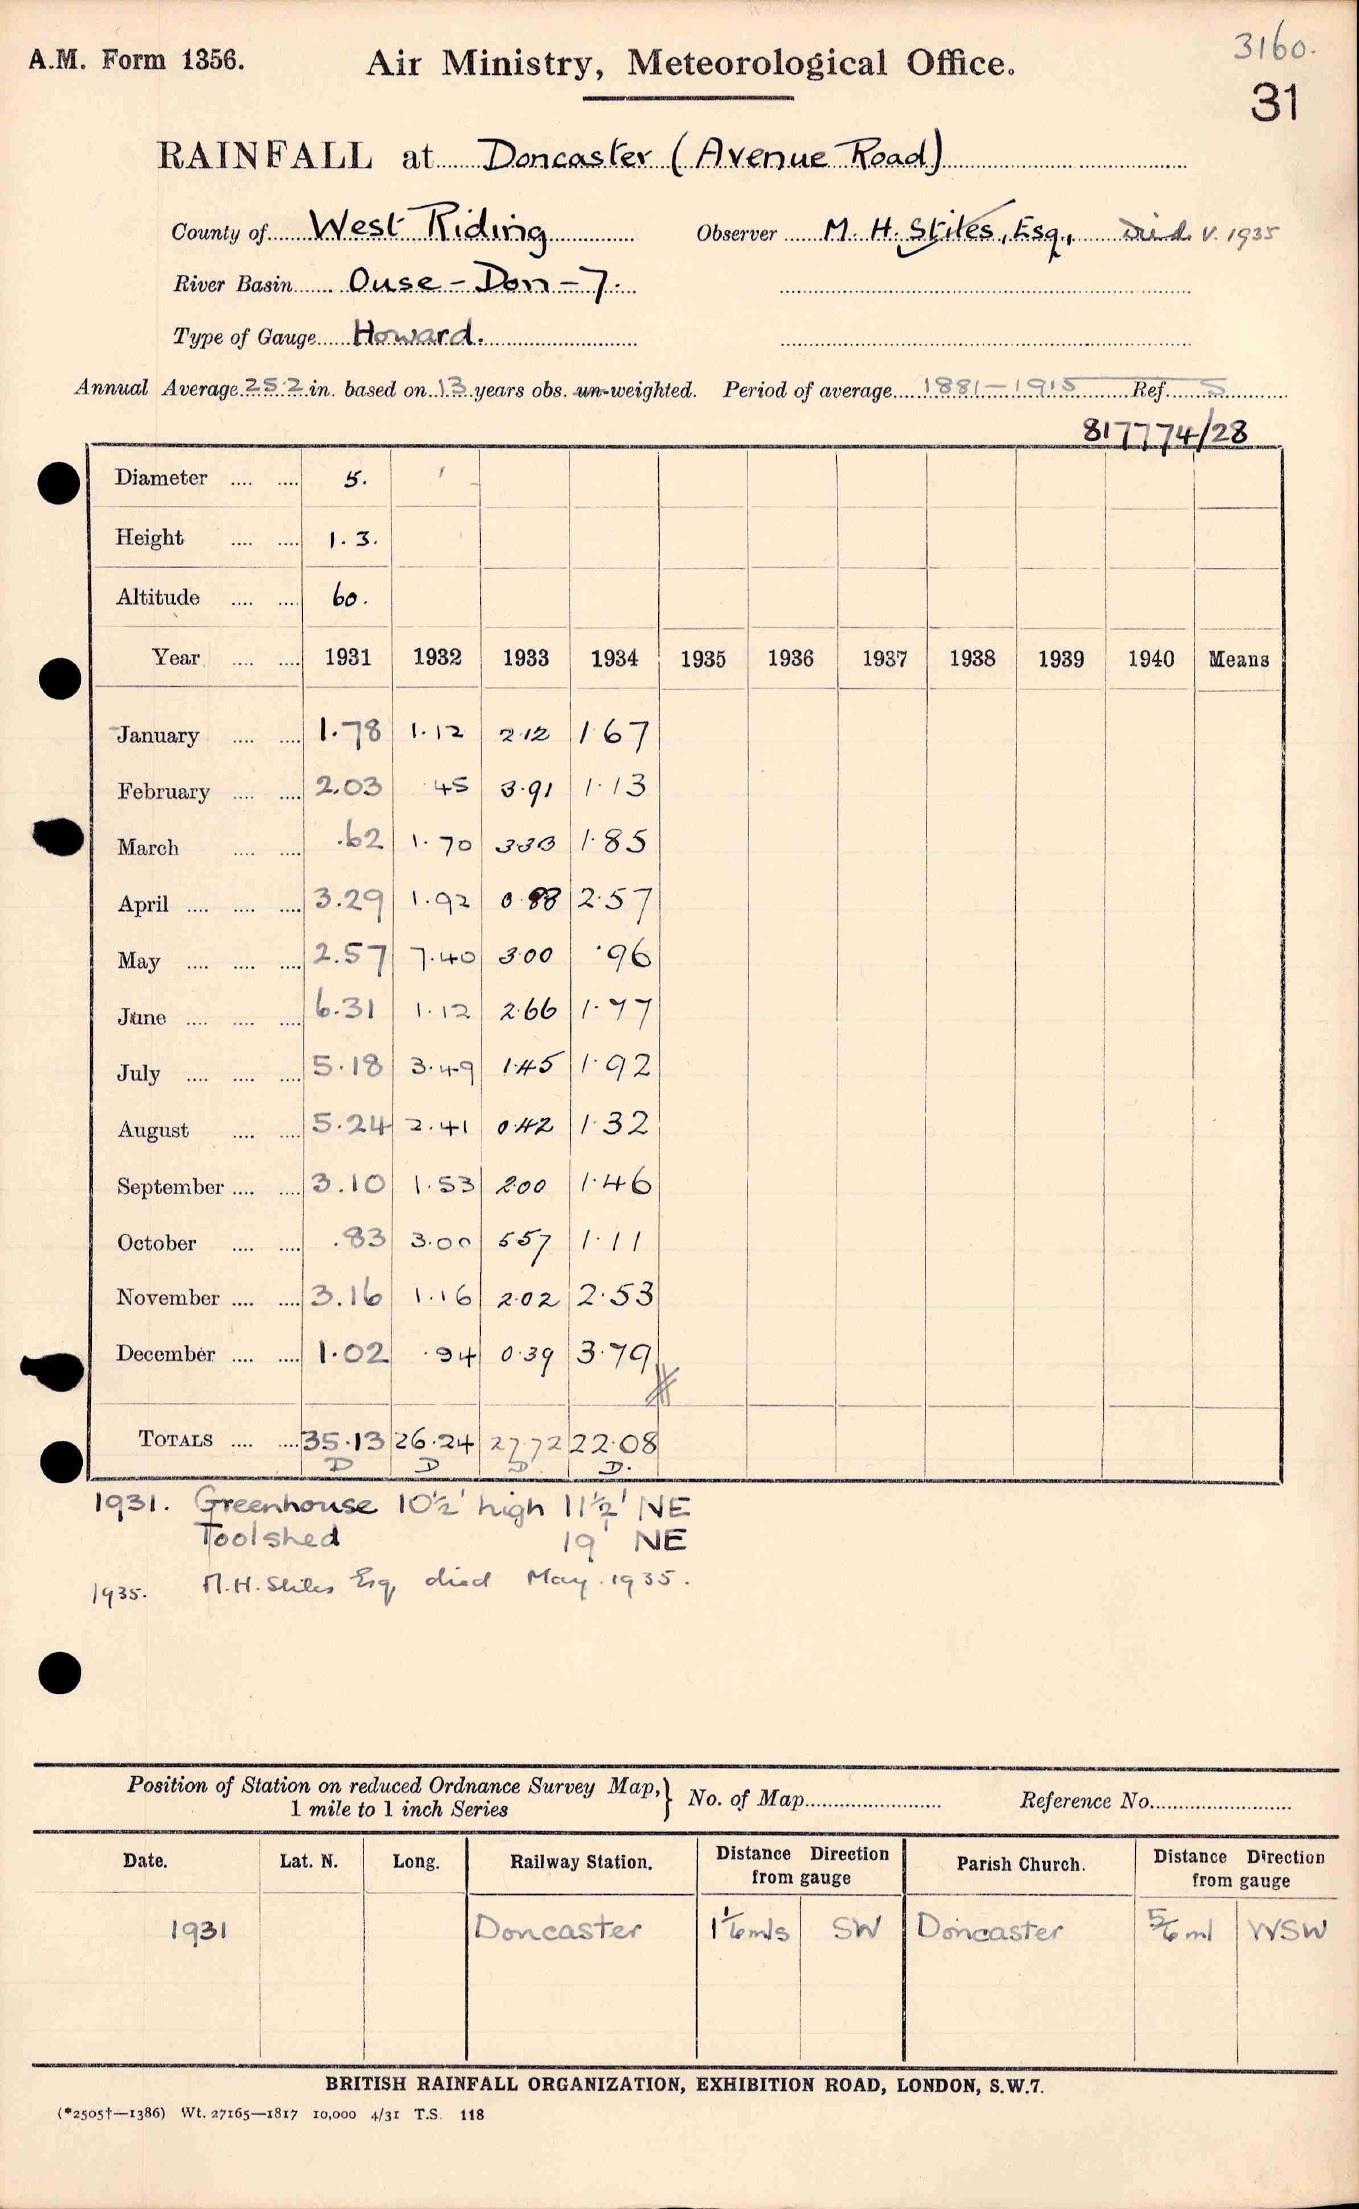 3160.
A.M. Form 1356. Air Ministry, Meteorological Office.
31
RAINFALL at Doncaster (Avenue Road)
County of West Riding Observer M. H. Stiles, Esq., Died V. 1935
River Basin Ouse - Don - 7.
Type of Gauge Howard.
Annual Average 25.2 in. based on 13 years obs. un-weighted. Period of average 1881-1915 Ref. S
817774/28
Diameter .... .... 5.
Height .... .... 1.3.
Altitude .... .... 60.
Year .... .... 1931 1932 1933 1934 1935 1936 1937 1938 1939 1940 Means
January .... .... 1.78 1.12 2.12 1.67
February .... .... 2.03 .45 3.91 1.13
March .... .... .62 1.70 3.30 1.85
April .... .... .... 3.29 1.92 0.88 2.57
May .... .... .... 2.57 7.40 3.00 .96
June .... .... .... 6.31 1.12 2.66 1.77
July .... .... .... 5.18 3.49 1.45 1.92
August .... .... 5.24 2.41 0.42 1.32
September .... .... 3.10 1.53 2.00 1.46
October .... .... .83 3.00 5.57 1.11
November .... .... 3.16 1.16 2.02 2.53
December .... .... 1.02 .94 0.39 3.79
TOTALS .... .... 35.13 26.24 27.72 22.08
D D D. D.
1931. Greenhouse 10½' high 11½' NE
Toolshed 19' NE
1935. M.H. Stiles Esq, died May. 1935.
Position of Station on reduced Ordnance Survey Map, } No. of Map Reference No.
1 mile to 1 inch Series
Date. Lat. N. Long. Railway Station. Distance Direction from gauge Parish Church. Distance Direction from gauge
1931 Doncaster 1 1/6 mls SW Doncaster 5/6 ml WSW
BRITISH RAINFALL ORGANIZATION, EXHIBITION ROAD, LONDON, S.W.7.
(*2505†—1386) Wt. 27165—1817 10,000 4/31 T.S. 118